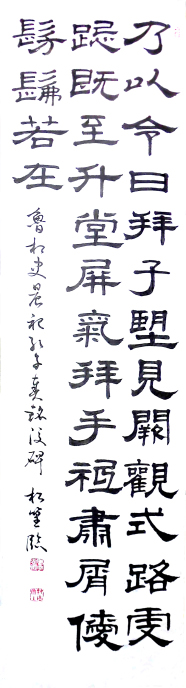 乃以令日拜子朢見闕觀式路虔
跽既至升堂屏氣拜手祗肅屑僾
髣髴若在
魯相史晨祀孔子奏銘後碑 臨